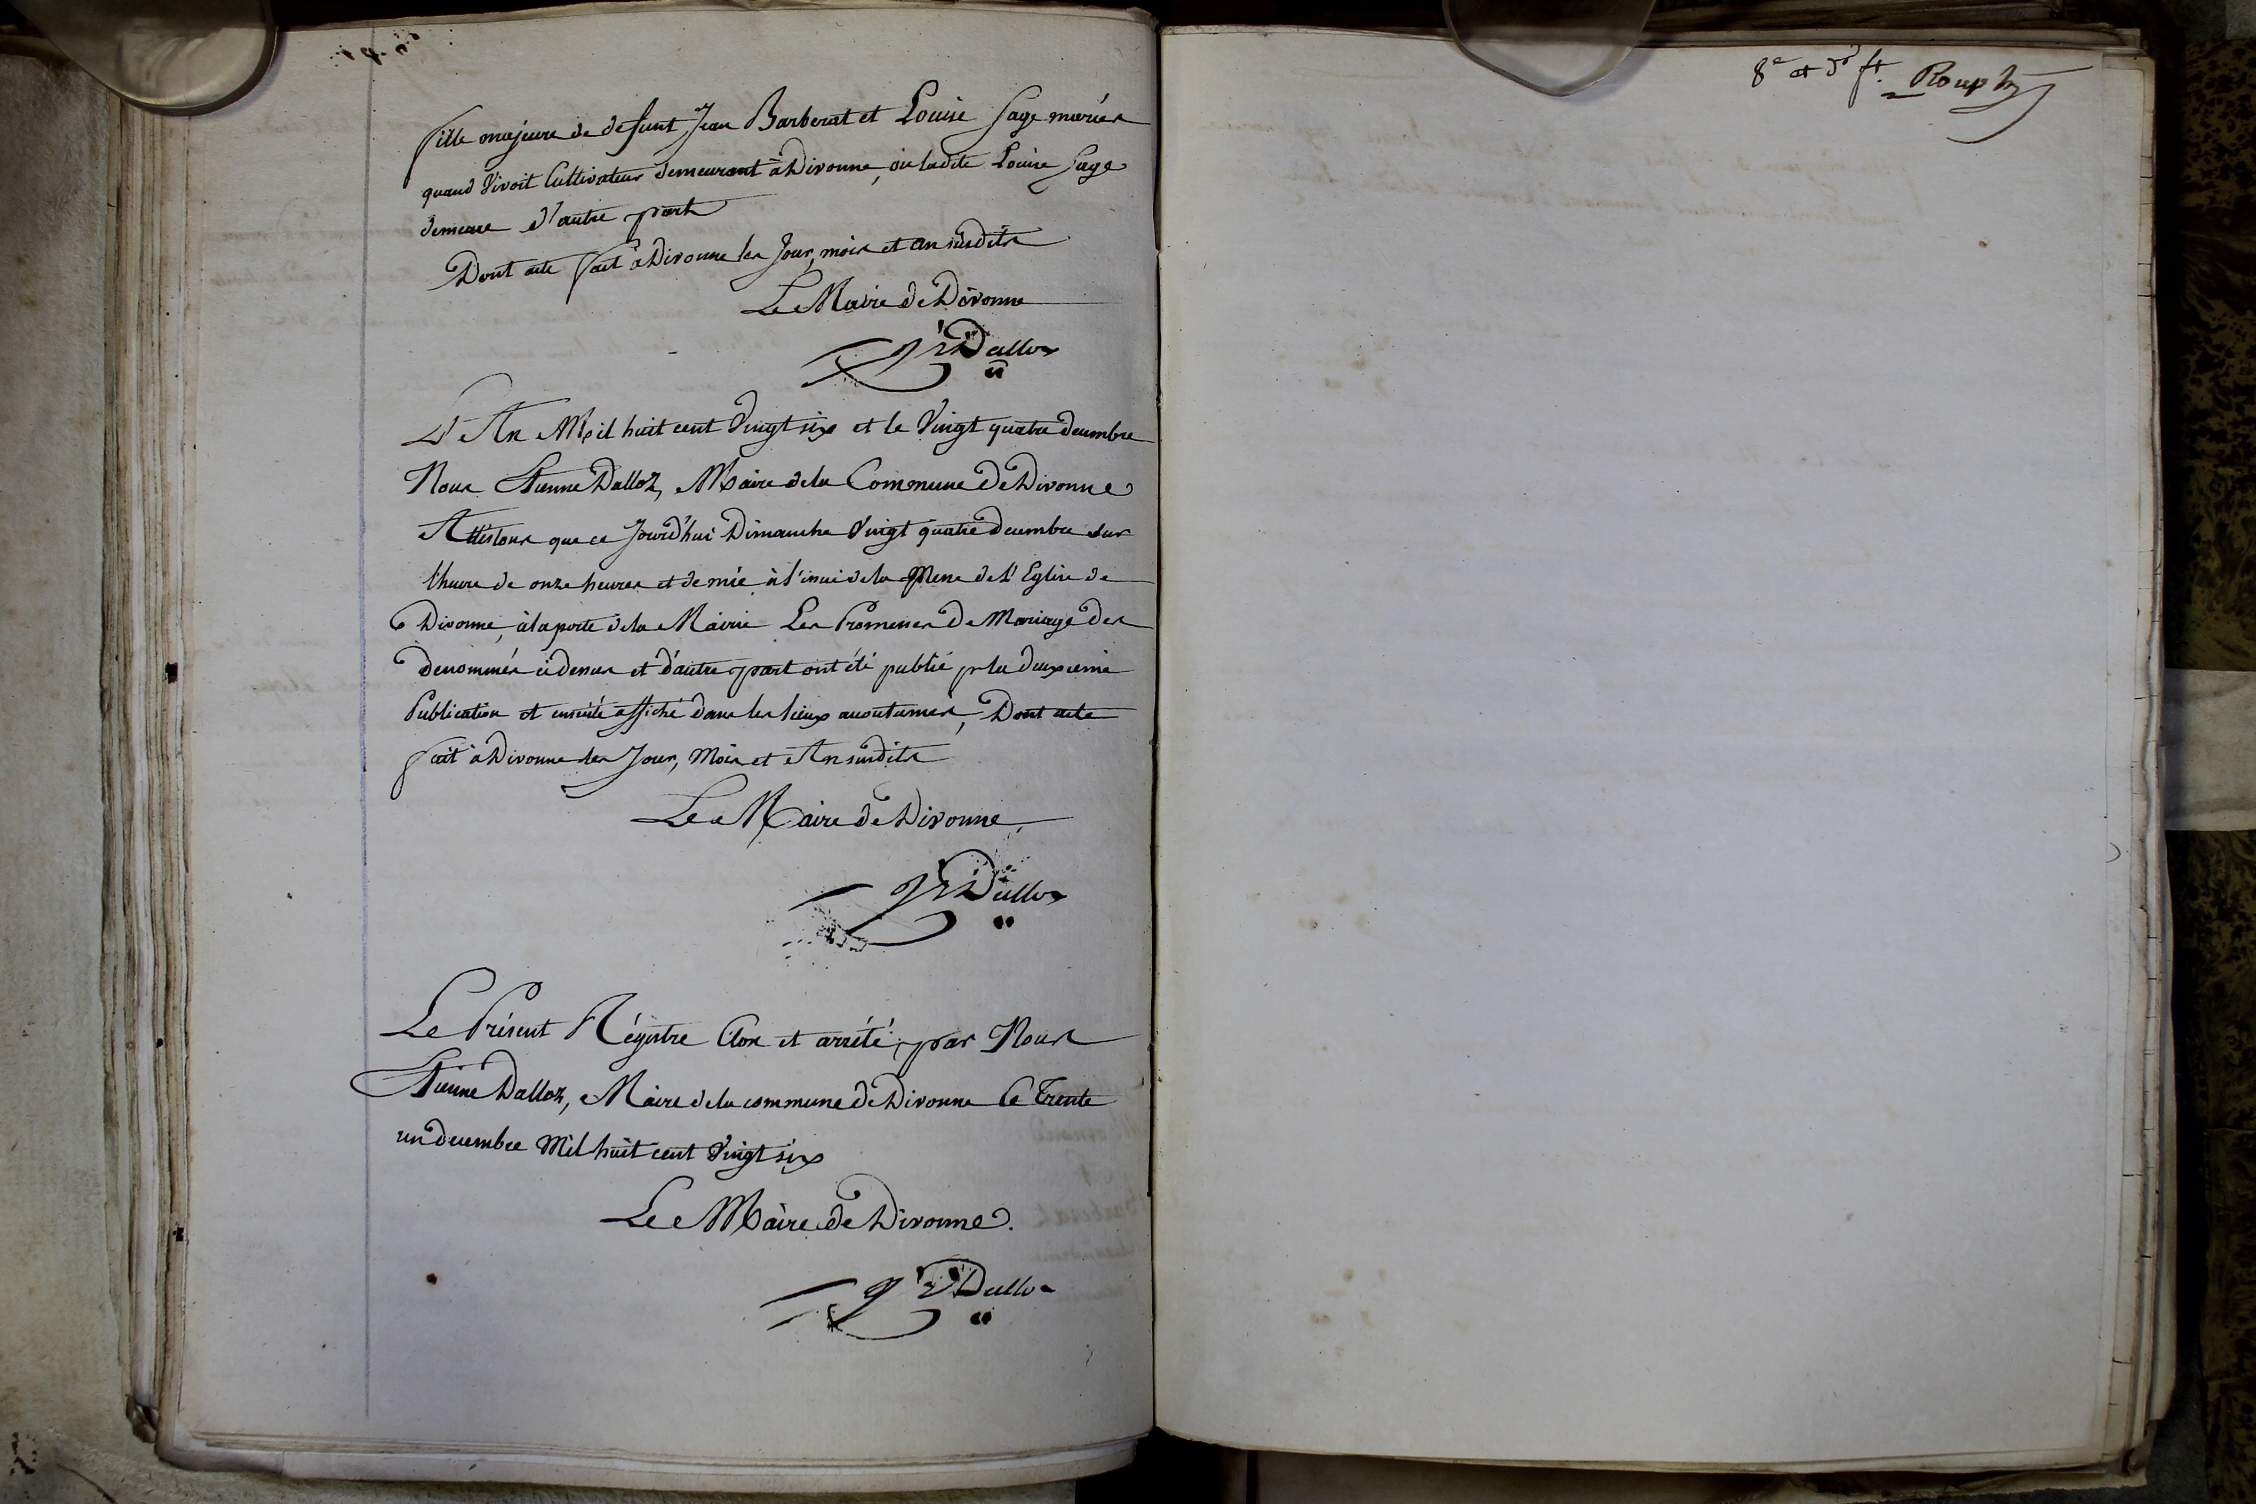 fille majeure de defunt Jean Barberat et Louise Sage mariés
quand Vivoit Cultivateur demeurant à Divonne, où ladite Louise Sage
demeure d'autre part
Dont acte fait à Divonne les Jour, mois et an susdits
Le Maire de Divonne
Dalloz
L'An Mil huit cent Vingt six et le Vingt quatre decembre
Nous Etienne Dalloz, Maire de la Commune De Divonne
Attestons que ce Jourd'hui Dimanche Vingt quatre decembre sur
l'heure de onze heures et demie à l'issue de la Messe de l'Eglise de
Divonne, à la porte de la Mairie Les Promesses De Mariage des
denommés ci dessus et d'autre part ont été publié pr la deuxieme
Publication et ensuite affiché dans les lieux accoutumés, Dont acte
fait à Divonne les Jour, Mois et An susdits
Le Maire de Divonne,
Dalloz
Le Présent Régistre Clos et arrêté, par Nous
Etienne Dalloz, Maire de la commune de Divonne Ce Trente
un decembre Mil huit cent Vingt six
Le Maire de Divonne.
Dalloz
8e et